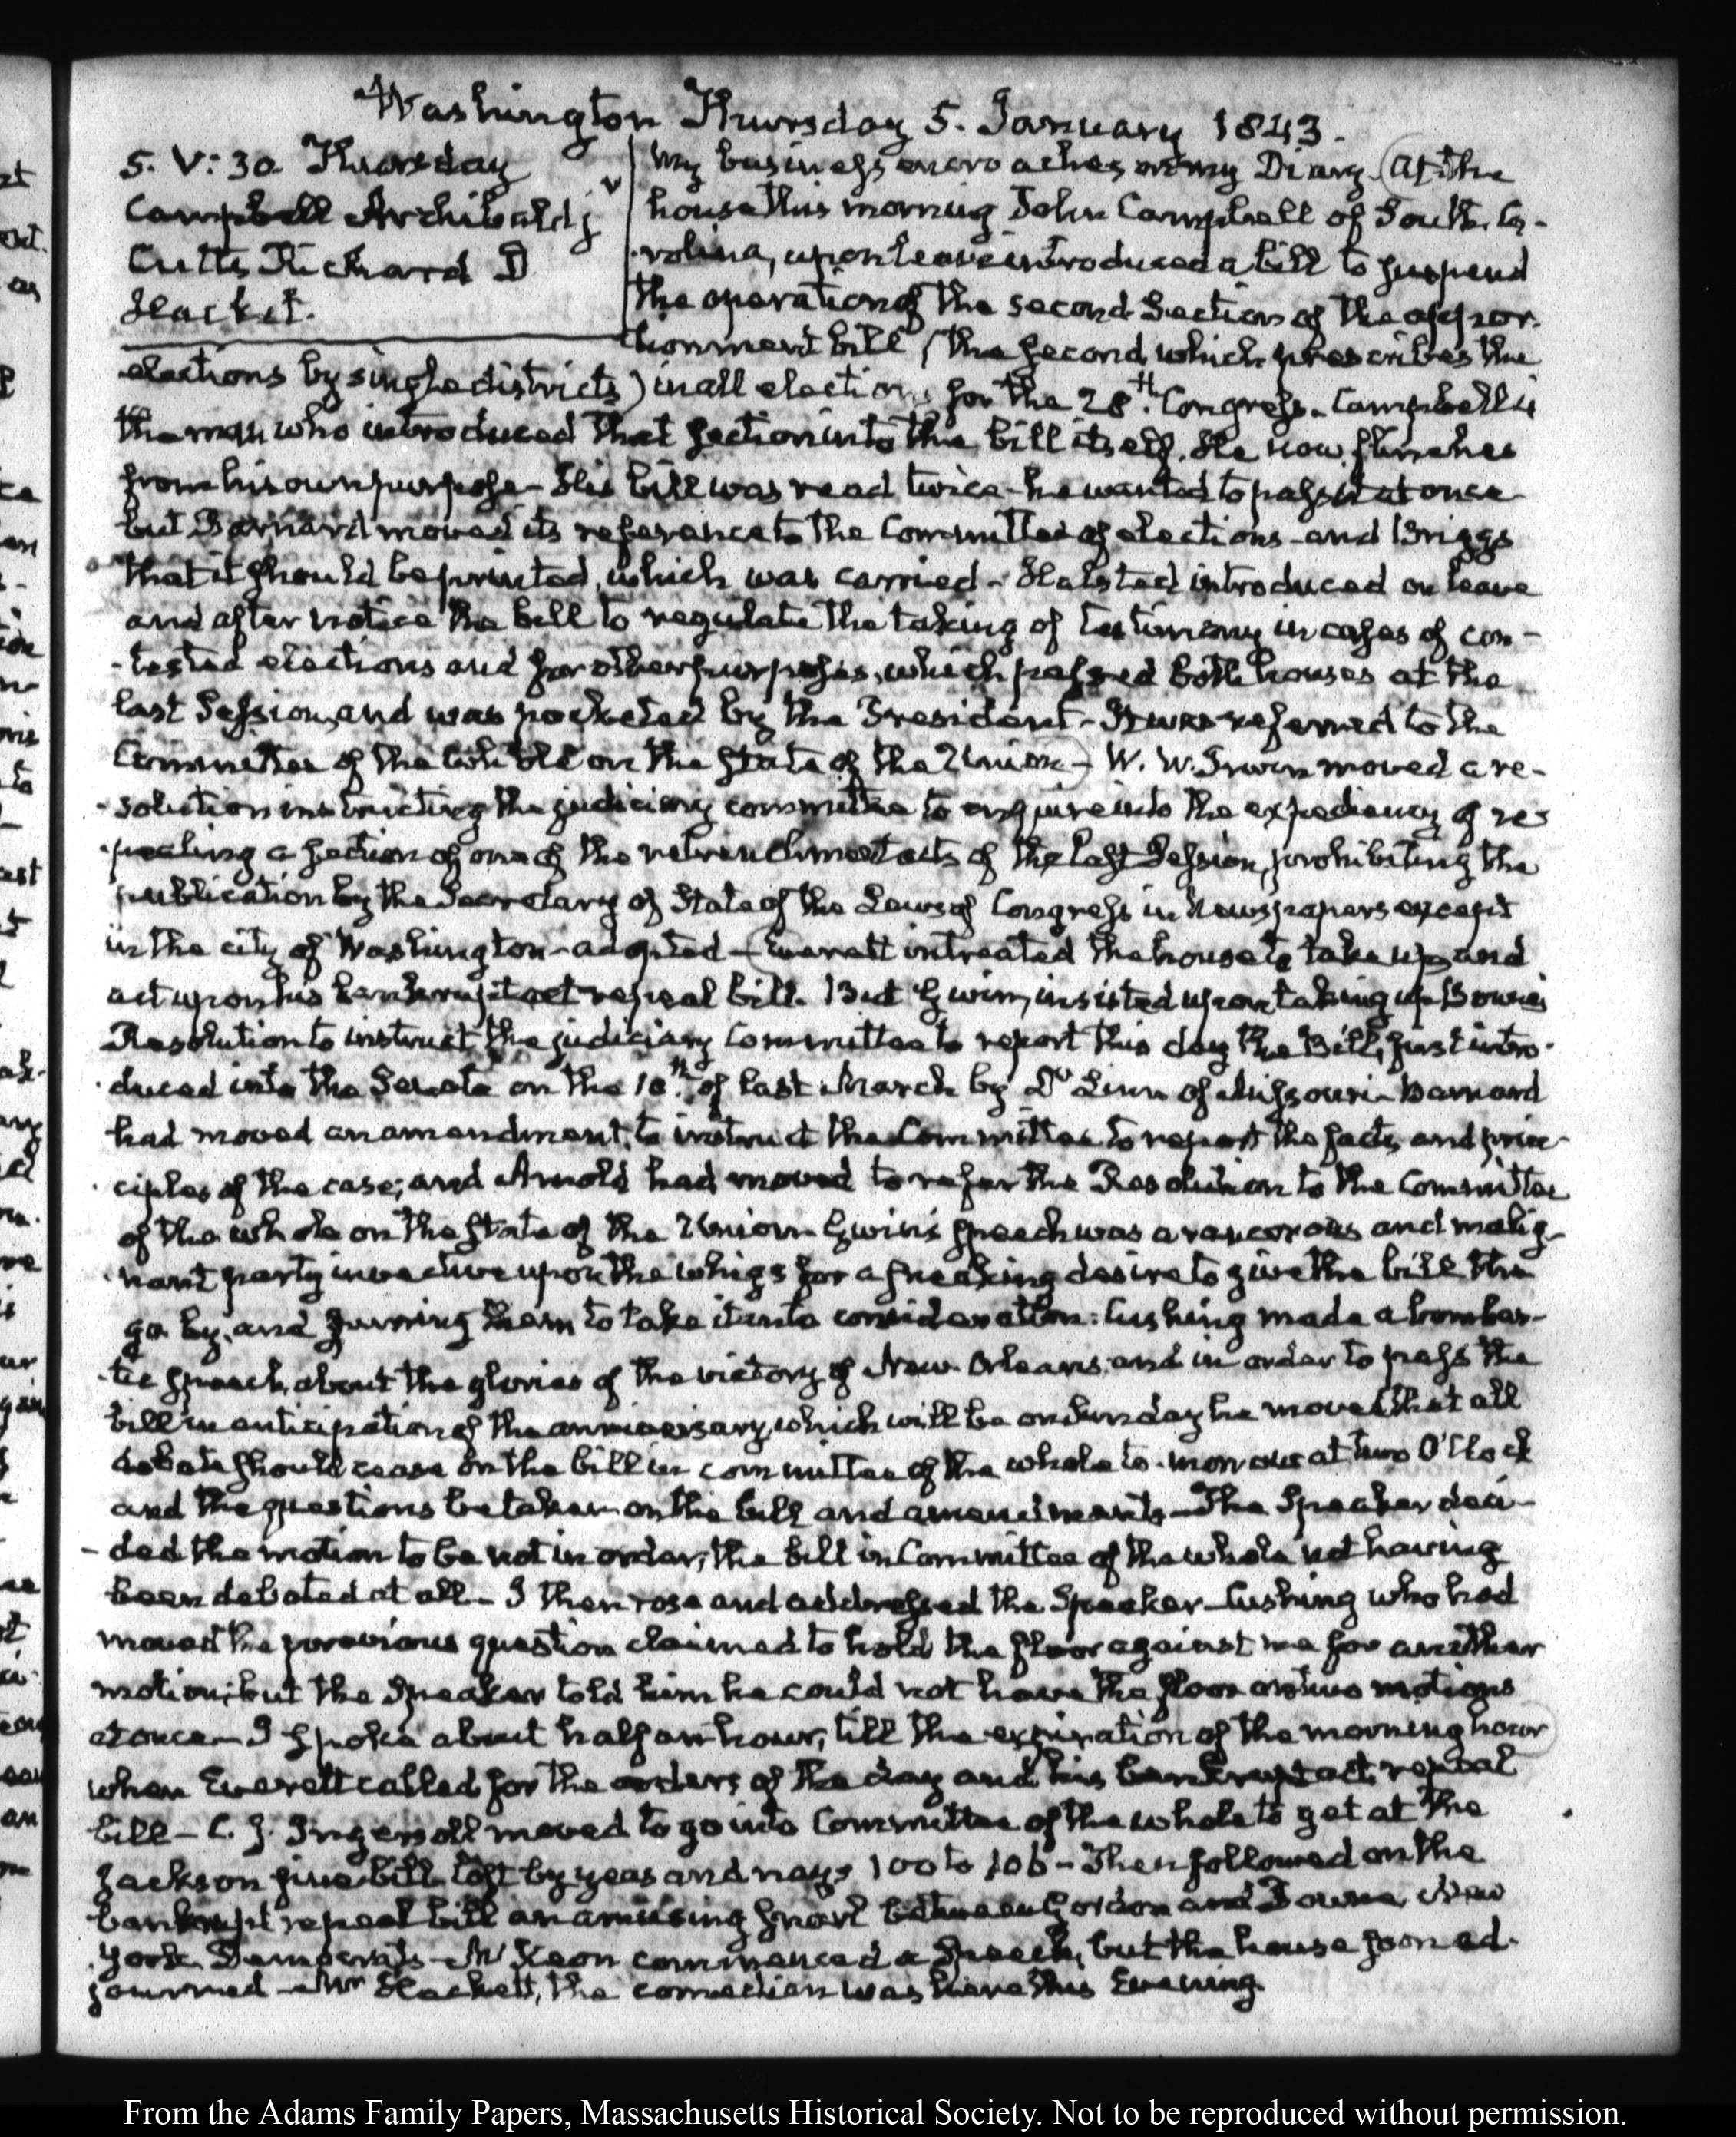 Washington Thursday 5. January 1843.
5. V: 30. Thursday
Campbell Archibald j
Cutts Richard D
Hacket.
V
My business encroaches on my Diary. At the
house this morning John Campbell of South Ca-
-rolina, upon leave introduced a bill to suspend
the operation of the second Section of the appor-
tionment bill, (the second, which prescribes the
elections by single districts) in all elections for the 28th. Congress. Campbell is
the man who introduced that section into the bill itself. He now flinches
from his own purpose - His bill was read twice - he wanted to pass it at once
but Barnard moved its reference to the Committee of elections - and Briggs
that it should be printed, which was carried - Halsted introduced on leave
and after notice the bill to regulate the taking of testimony in cases of con-
-tested elections and for other purposes, which passed both houses at the
last Session, and was pocketed by the President - It was referred to the
Committee of the whole on the state of the Union - W. W. Irwin moved a re-
-solution instructing the judiciary committee to enquire into the expediency of re-
-pealing a section of one of the retrenchment acts of the last Session, prohibiting the
publication by the Secretary of State of the Laws of Congress in Newspapers except
in the city of Washington - adopted - Everett intreated the house to take up and
act upon his bankrupt act repeal bill. But Gwin, insisted upon taking up Bowne's
Resolution to instruct the judiciary Committee to report this day the Bill, first intro-
-duced into the Senate on the 10th. of last March by Dr Linn of Missouri - Barnard
had moved an amendment, to instruct the Committee to report the facts, and prin-
-ciples of the case; and Arnold had moved to refer the Resolution to the Committee
of the whole on the state of the Union. Gwin's speech was a rancorous and malig-
-nant party invective upon the whigs for a sneaking desire to give the bill the
go by, and fearing them to take it into consideration: Cushing made a bombas-
-tic speech, about the glories of the victory of New Orleans, and in order to pass the
bill in anticipation of the anniversary, which will be on Sunday he moved that all
debate should cease on the bill in committee of the whole to-morrow at two O'Clock
and the questions be taken on the bill and amendments - The Speaker deci-
-ded the motion to be not in order, the bill in Committee of the whole not having
been debated at all - I then rose and addressed the Speaker - Cushing who had
moved the previous question claimed to hold the floor against me for another
motion; but the Speaker told him he could not have the floor on two motions
at once - I spoke about half an hour, till the expiration of the morning hour
when Everett called for the orders of the day and his bankrupt act, repeal
bill - C. J. Ingersoll moved to go into Committee of the whole to get at the
Jackson fine bill. lost by yeas and nays 100 to 106 - Then followed on the
bankrupt repeal bill an amusing spar between Gordon and Bowne, New
York Democrats - McKeon commenced a Speech, but the house soon ad-
journed - Mr Hackett, the comedian was here this Evening.
From the Adams Family Papers, Massachusetts Historical Society. Not to be reproduced without permission.